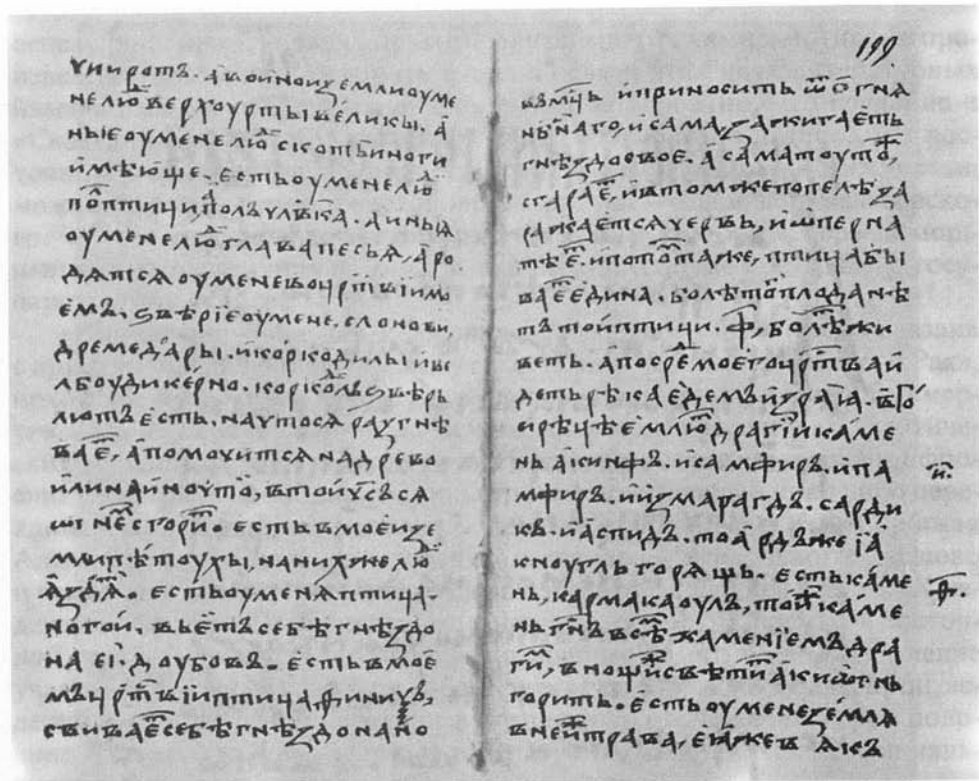 чи ротъ . а в ыинои земли оу ме
не лю верх оу рты велики . а
ныѥ оу мене люⷣ скотьи ноги
имѣюще . есть оу мене люⷣ
поⷧ птици, поⷧъ чл҃ка . а иныꙗ
оу мене люⷣ глава песьꙗ, а ро
дятся оу мене во црⷭ҇твѣ i мо
емъ . ѕвѣрiе оу мене . слонови
дремедары . и коркодилы и ве
лбоуди керно . коркоⷣлъ ѕвѣрь
лютъ есть . на что ся разгнѣ
ваеⷮ, а помочится на древо
или на ино что, в той чⷭ҇ъ ся
огнеⷨ сгориⷮ . есть в моеи зе
мли пѣтоухы, на них же люⷣ
ꙗздѧⷮ . есть оу меня птица .
ногой . вьетъ себѣ гнѣздо
на еі . доубовъ . есть в мое
мъ црⷭ҇твiи птица финиѯъ,
свиваеⷮ себѣ гнѣздо на но
199
в мⷭ҇ць и приносить ѿ огня
нбⷭ҇наго, и сама зажигаеть
гнѣздо свое . а сама тоу тоⷤ,
сгараеⷮ, и в том же попелѣ за
ражается червь, и ѡперна
тѣеⷮ . и потоⷨ таже, птица бы
ваеⷮ едина . болѣ тоⷢ плода нѣ
тъ той птици . ф҃, болѣ жи
веть . а посреⷣ моего црⷭ҇тва и
деть рѣка едемъ из раiа . в тоⷤ
и рѣцѣ емлюⷮ драгiй каме
нь акинфъ . и самфиръ . и па
мфиръ . и измарагдъ . сарди
къ . и аспидъ . твардъ же iа
ко оугль горящь . есть каме
нь, кармакаоулъ, той же каме
нь гн҃ъ всѣⷨ каменiемъ дра
гиⷨ, в нощи же свѣтиⷮ аки огнь
горить . есть оу мене земля
в ней же трава, еꙗже всякъ